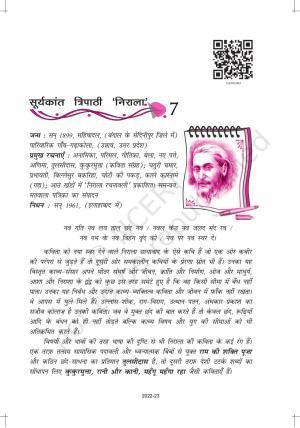 सूर्यकांत त्रिपाठी 'निराला'
7
जन्म : सन् 1899, महिषादल, (बंगाल के मेदिनीपुर जिले में)
पारिवारिक गाँव-गढ़ाकोला, (उन्नाव, उत्तर प्रदेश)
प्रमुख रचनाएँ : अनामिका, परिमल, गीतिका, बेला, नए पत्ते,
अणिमा, तुलसीदास, कुकुरमुत्ता (कविता संग्रह); चतुरी चमार,
प्रभावती, बिल्लेसुर बकरिहा, चोटी की पकड़, काले कारनामे
(गद्य); आठ खंडों में 'निराला रचनावली' प्रकाशित। समन्वय,
मतवाला पत्रिका का संपादन
निधन : सन् 1961, (इलाहाबाद में)
नव गति नव लय ताल छंद नव / नवल कंठ नव जलद मंद्र रव /
नव नभ के नव विहग वृंद को / नव पर नव स्वर दे।
कविता को नया स्वर देने वाले निराला छायावाद के ऐसे कवि हैं जो एक ओर कबीर
की परंपरा से जुड़ते हैं तो दूसरी ओर समकालीन कवियों के प्रेरणा स्रोत भी हैं। उनका यह
विस्तृत काव्य-संसार अपने भीतर संघर्ष और जीवन, क्रांति और निर्माण, ओज और माधुर्य,
आशा और निराशा के द्वंद्व को कुछ इस तरह समेटे हुए है कि वह किसी सीमा में बँध नहीं
पाता। उनका यह निर्बंध और उदात्त काव्य-व्यक्तित्व कविता और जीवन में फाँक नहीं रखता।
वे आपस में घुले-मिले हैं। उल्लास-शोक, राग-विराग, उत्थान-पतन, अंधकार-प्रकाश का
सजीव कोलाज है उनकी कविता। जब वे मुक्त छंद की बात करते हैं तो केवल छंद, रूढ़ियों
आदि के बंधन को ही नहीं तोड़ते बल्कि काव्य विषय और युग की सीमाओं को भी
अतिक्रमित करते हैं।
विषयों और भावों की तरह भाषा की दृष्टि से भी निराला की कविता के कई रंग हैं।
एक तरफ़ तत्सम सामासिक पदावली और ध्वन्यात्मक बिंबों से युक्त राम की शक्ति पूजा
और कठिन छंद-साधना का प्रतिमान तुलसीदास है, तो दूसरी तरफ़ देशी टटके शब्दों का
सोंधापन लिए कुकुरमुत्ता, रानी और कानी, महँगू महँगा रहा जैसी कविताएँ हैं।
2022-23